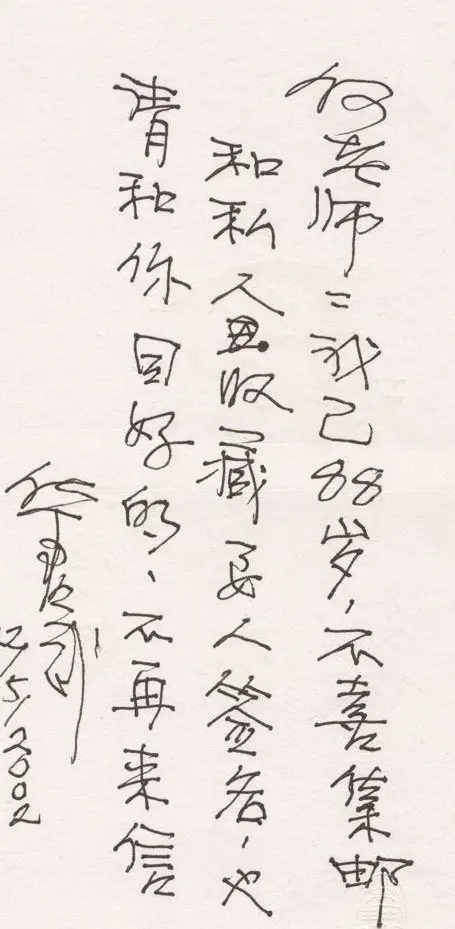 何老师：我已88岁，不喜集邮
和私人收藏要人签名，也
请和你同好的，不再来信
12/5/2002